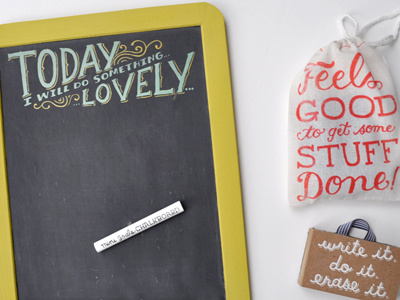 TODAY
I WILL DO SOMETHING...
...LOVELY...
CHALKBOARD
Feels
GOOD
to get some
STUFF
Done!
write it.
do it.
erase it.